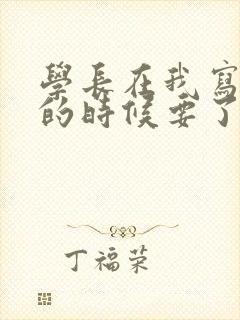 學長在我寫
的時候要了
丁福荣